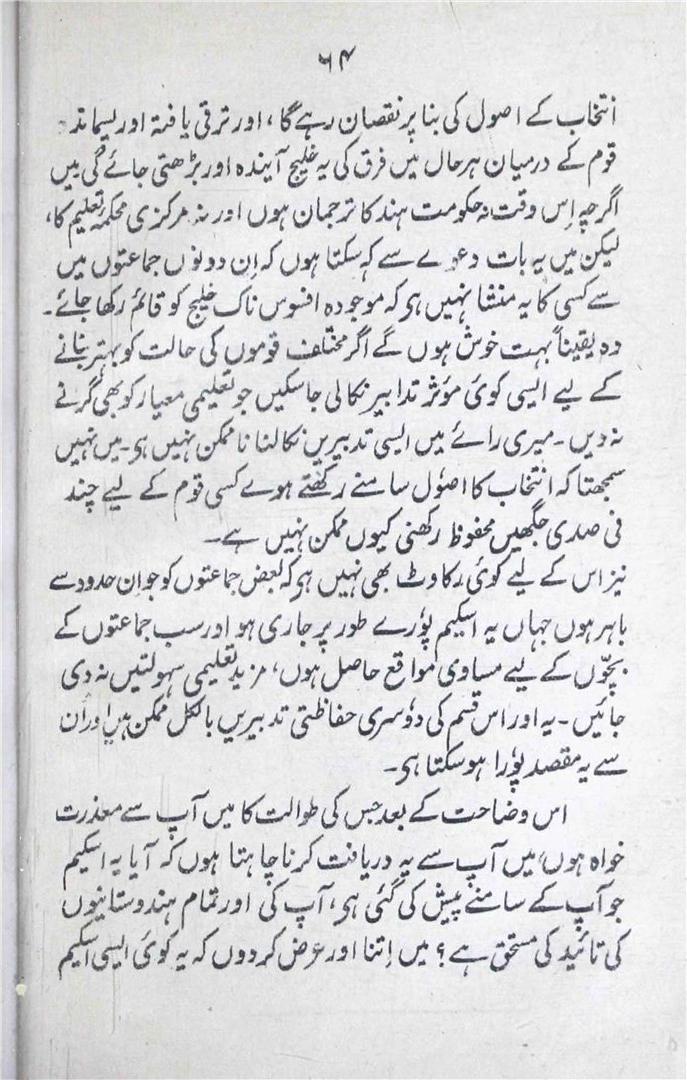 ۶۴
انتخاب کے اصول کی بنا پر نقصان رہے گا، اور ترقی یافتہ اور پسماندہ
قوم کے درمیان ہر حال میں فرق کی یہ خلیج آیندہ اور بڑھتی جائے گی میں
اگرچہ اِس وقت نہ حکومت ہند کا ترجمان ہوں اور نہ مرکزی محکمۂ تعلیم کا،
لیکن میں یہ بات دعوے سے کہ سکتا ہوں کہ اِن دونوں جماعتوں میں
سے کسی کا یہ منشا نہیں ہی کہ موجودہ افسوس ناک خلیج کو قائم رکھا جائے۔
وہ یقیناً بہت خوش ہوں گے اگر مختلف قوموں کی حالت کو بہتر بنانے
کے لیے ایسی کوئی مؤثر تدابیر نکالی جاسکیں جو تعلیمی معیار کو بھی گرنے
نہ دیں۔ میری رائے میں ایسی تدبیریں نکالنا ناممکن نہیں ہی۔ میں نہیں
سمجھتا کہ انتخاب کا اصول سامنے رکھتے ہوے کسی قوم کے لیے چند
فی صدی جگھیں محفوظ رکھنی کیوں ممکن نہیں ہے۔
نیز اس کے لیے کوئی رکاوٹ بھی نہیں ہی کہ بعض جماعتوں کو جو اِن حدود سے
باہر ہوں جہاں یہ اسکیم پورے طور پر جاری ہو اور سب جماعتوں کے
بچّوں کے لیے مساوی مواقع حاصل ہوں، مزید تعلیمی سہولتیں نہ دی
جائیں۔ یہ اور اس قسم کی دوسری حفاظتی تدبیریں بالکل ممکن ہیں اور اُن
سے یہ مقصد پورا ہوسکتا ہی۔
اس وضاحت کے بعد جس کی طوالت کا میں آپ سے معذرت
خواہ ہوں، میں آپ سے یہ دریافت کرنا چاہتا ہوں کہ آیا یہ اسکیم
جو آپ کے سامنے پیش کی گئی ہی، آپ کی اور تمام ہندوستانیوں
کی تائید کی مستحق ہے؟ میں اِتنا اور عرض کردوں کہ یہ کوئی ایسی اسکیم